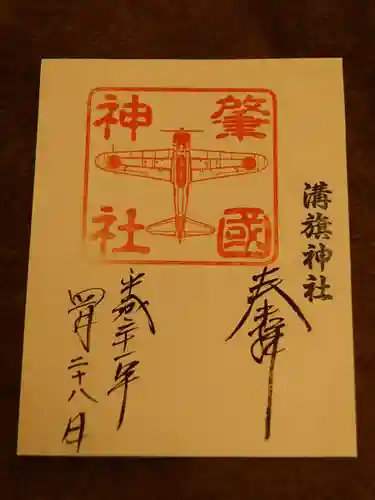 肇國
神社
溝旗神社
奉拝
平成三十一年
四月二十八日